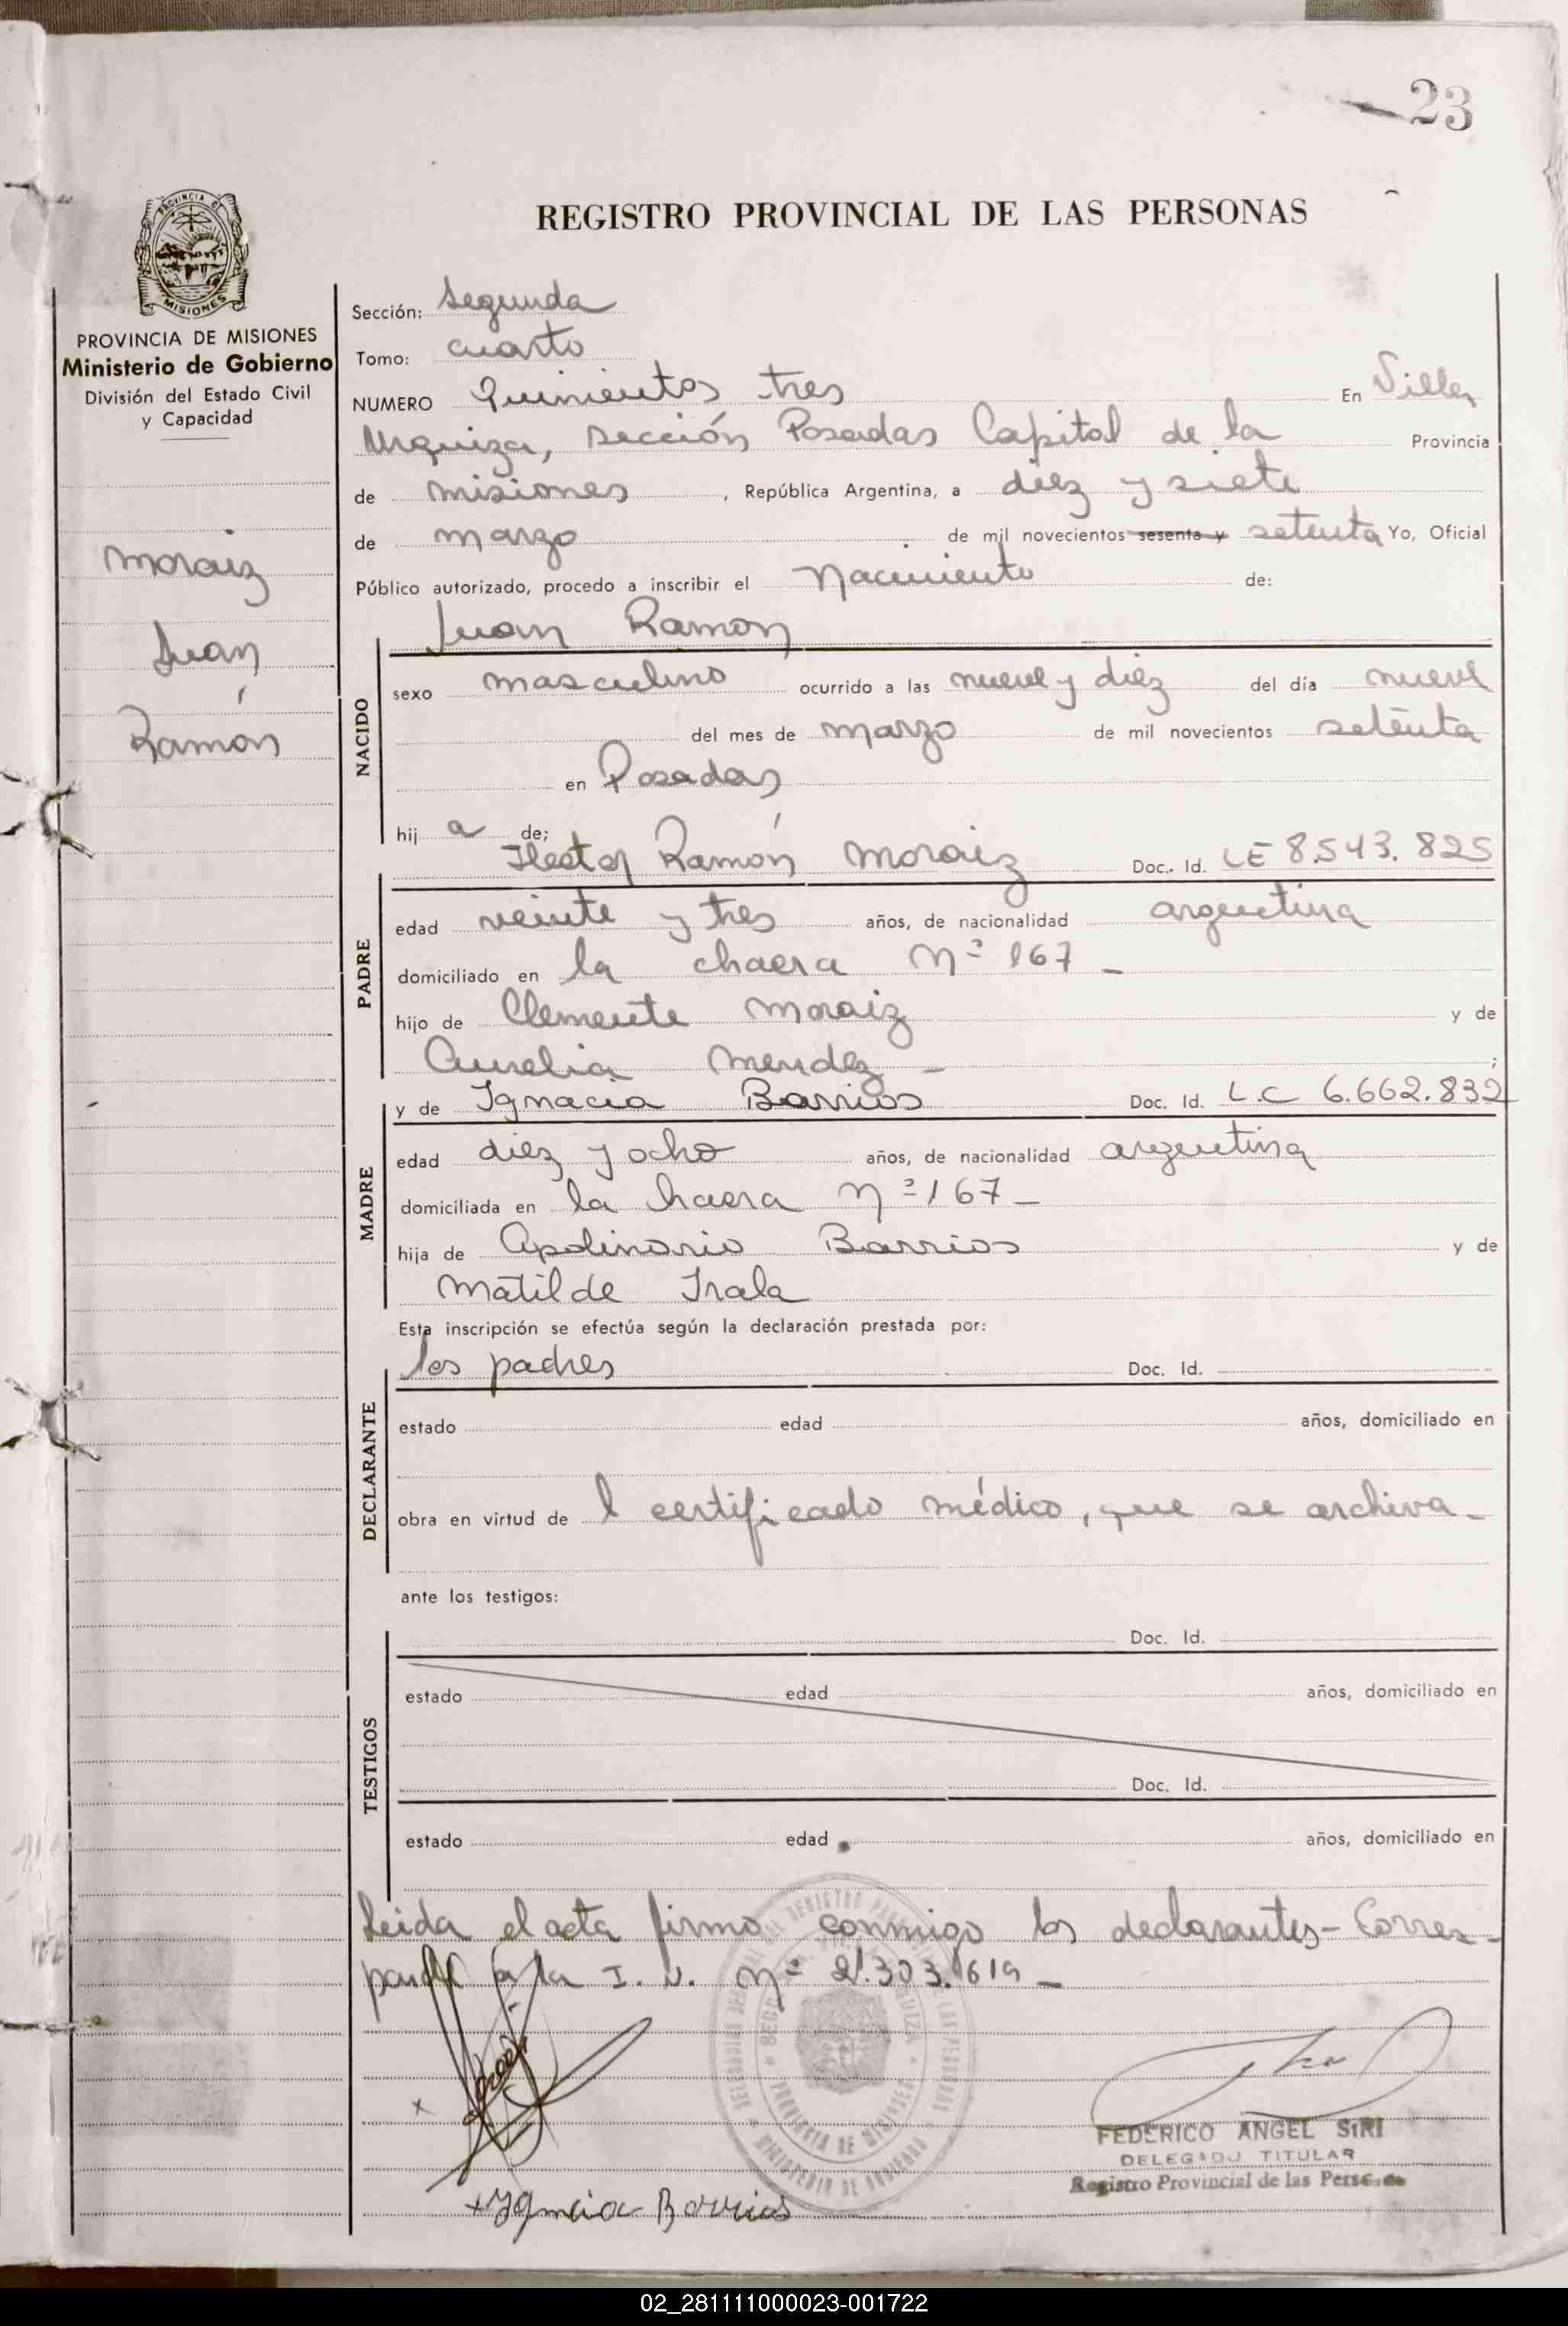 23
PROVINCIA DE
MISIONES
REGISTRO PROVINCIAL DE LAS PERSONAS
PROVINCIA DE MISIONES
Ministerio de Gobierno
División del Estado Civil
y Capacidad
Moraiz
Juan
Ramón
Sección: Segunda
Tomo: cuarto
NUMERO Quinientos tres En Villa
Urquiza, sección Posadas Capital de la Provincia
de misiones, República Argentina, a diez y siete
de marzo de mil novecientos sesenta y setenta Yo, Oficial
Público autorizado, procedo a inscribir el Nacimiento de:
Juan Ramon
NACIDO
sexo masculino ocurrido a las nueve y diez del día nueve
del mes de marzo de mil novecientos setenta
en Posadas
hij a de;
Hector Ramón Moraiz Doc. Id. LE 8.543.825
PADRE
edad veinte y tres años, de nacionalidad argentina
domiciliado en la chacra Nº 167 -
hijo de Clemente Moraiz y de
Aurelia Mendez - ;
y de Ignacia Barrios Doc. Id. L.C 6.662.832
MADRE
edad diez y ocho años, de nacionalidad argentina
domiciliada en la hacra Nº 167 -
hija de Apolinario Barrios y de
Matilde Irala
Esta inscripción se efectúa según la declaración prestada por:
los padres Doc. Id.
DECLARANTE
estado edad años, domiciliado en
obra en virtud de l certificado médico, que se archiva -
ante los testigos:
Doc. Id.
TESTIGOS
estado edad años, domiciliado en
Doc. Id.
estado edad años, domiciliado en
Leida el acta firmo conmigo los declarantes - Corres-
ponde a la I. N. Nº 21.303.619 -
x
FEDERICO ANGEL SIRI
DELEGADO TITULAR
Registro Provincial de las Personas
x Ygnacia Barrios
02_281111000023-001722